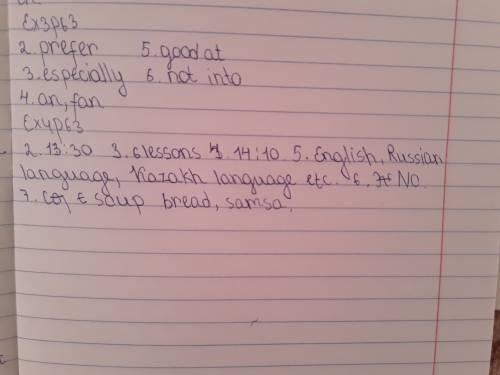 Ex3p63
2. prefer 5. good at
3. especially 6. not into
4. an, fan
Ex4p63
2. 13:30 3. 6 lessons 4. 14:10 5. English, Russian
language, Kazakh language etc. 6. NO.
7. soup bread, samsa.